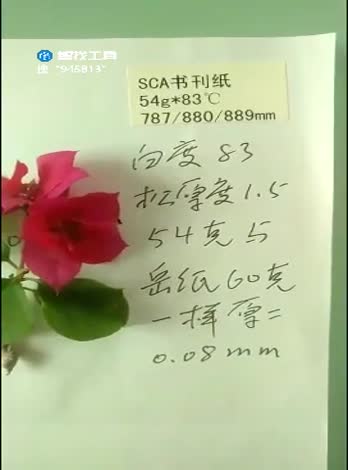 智找工具
搜"945813"
SCA书刊纸
54g*83℃
787/880/889mm
白度83
松厚度1.5
54克与
岳纸60克
一样厚=
0.08mm